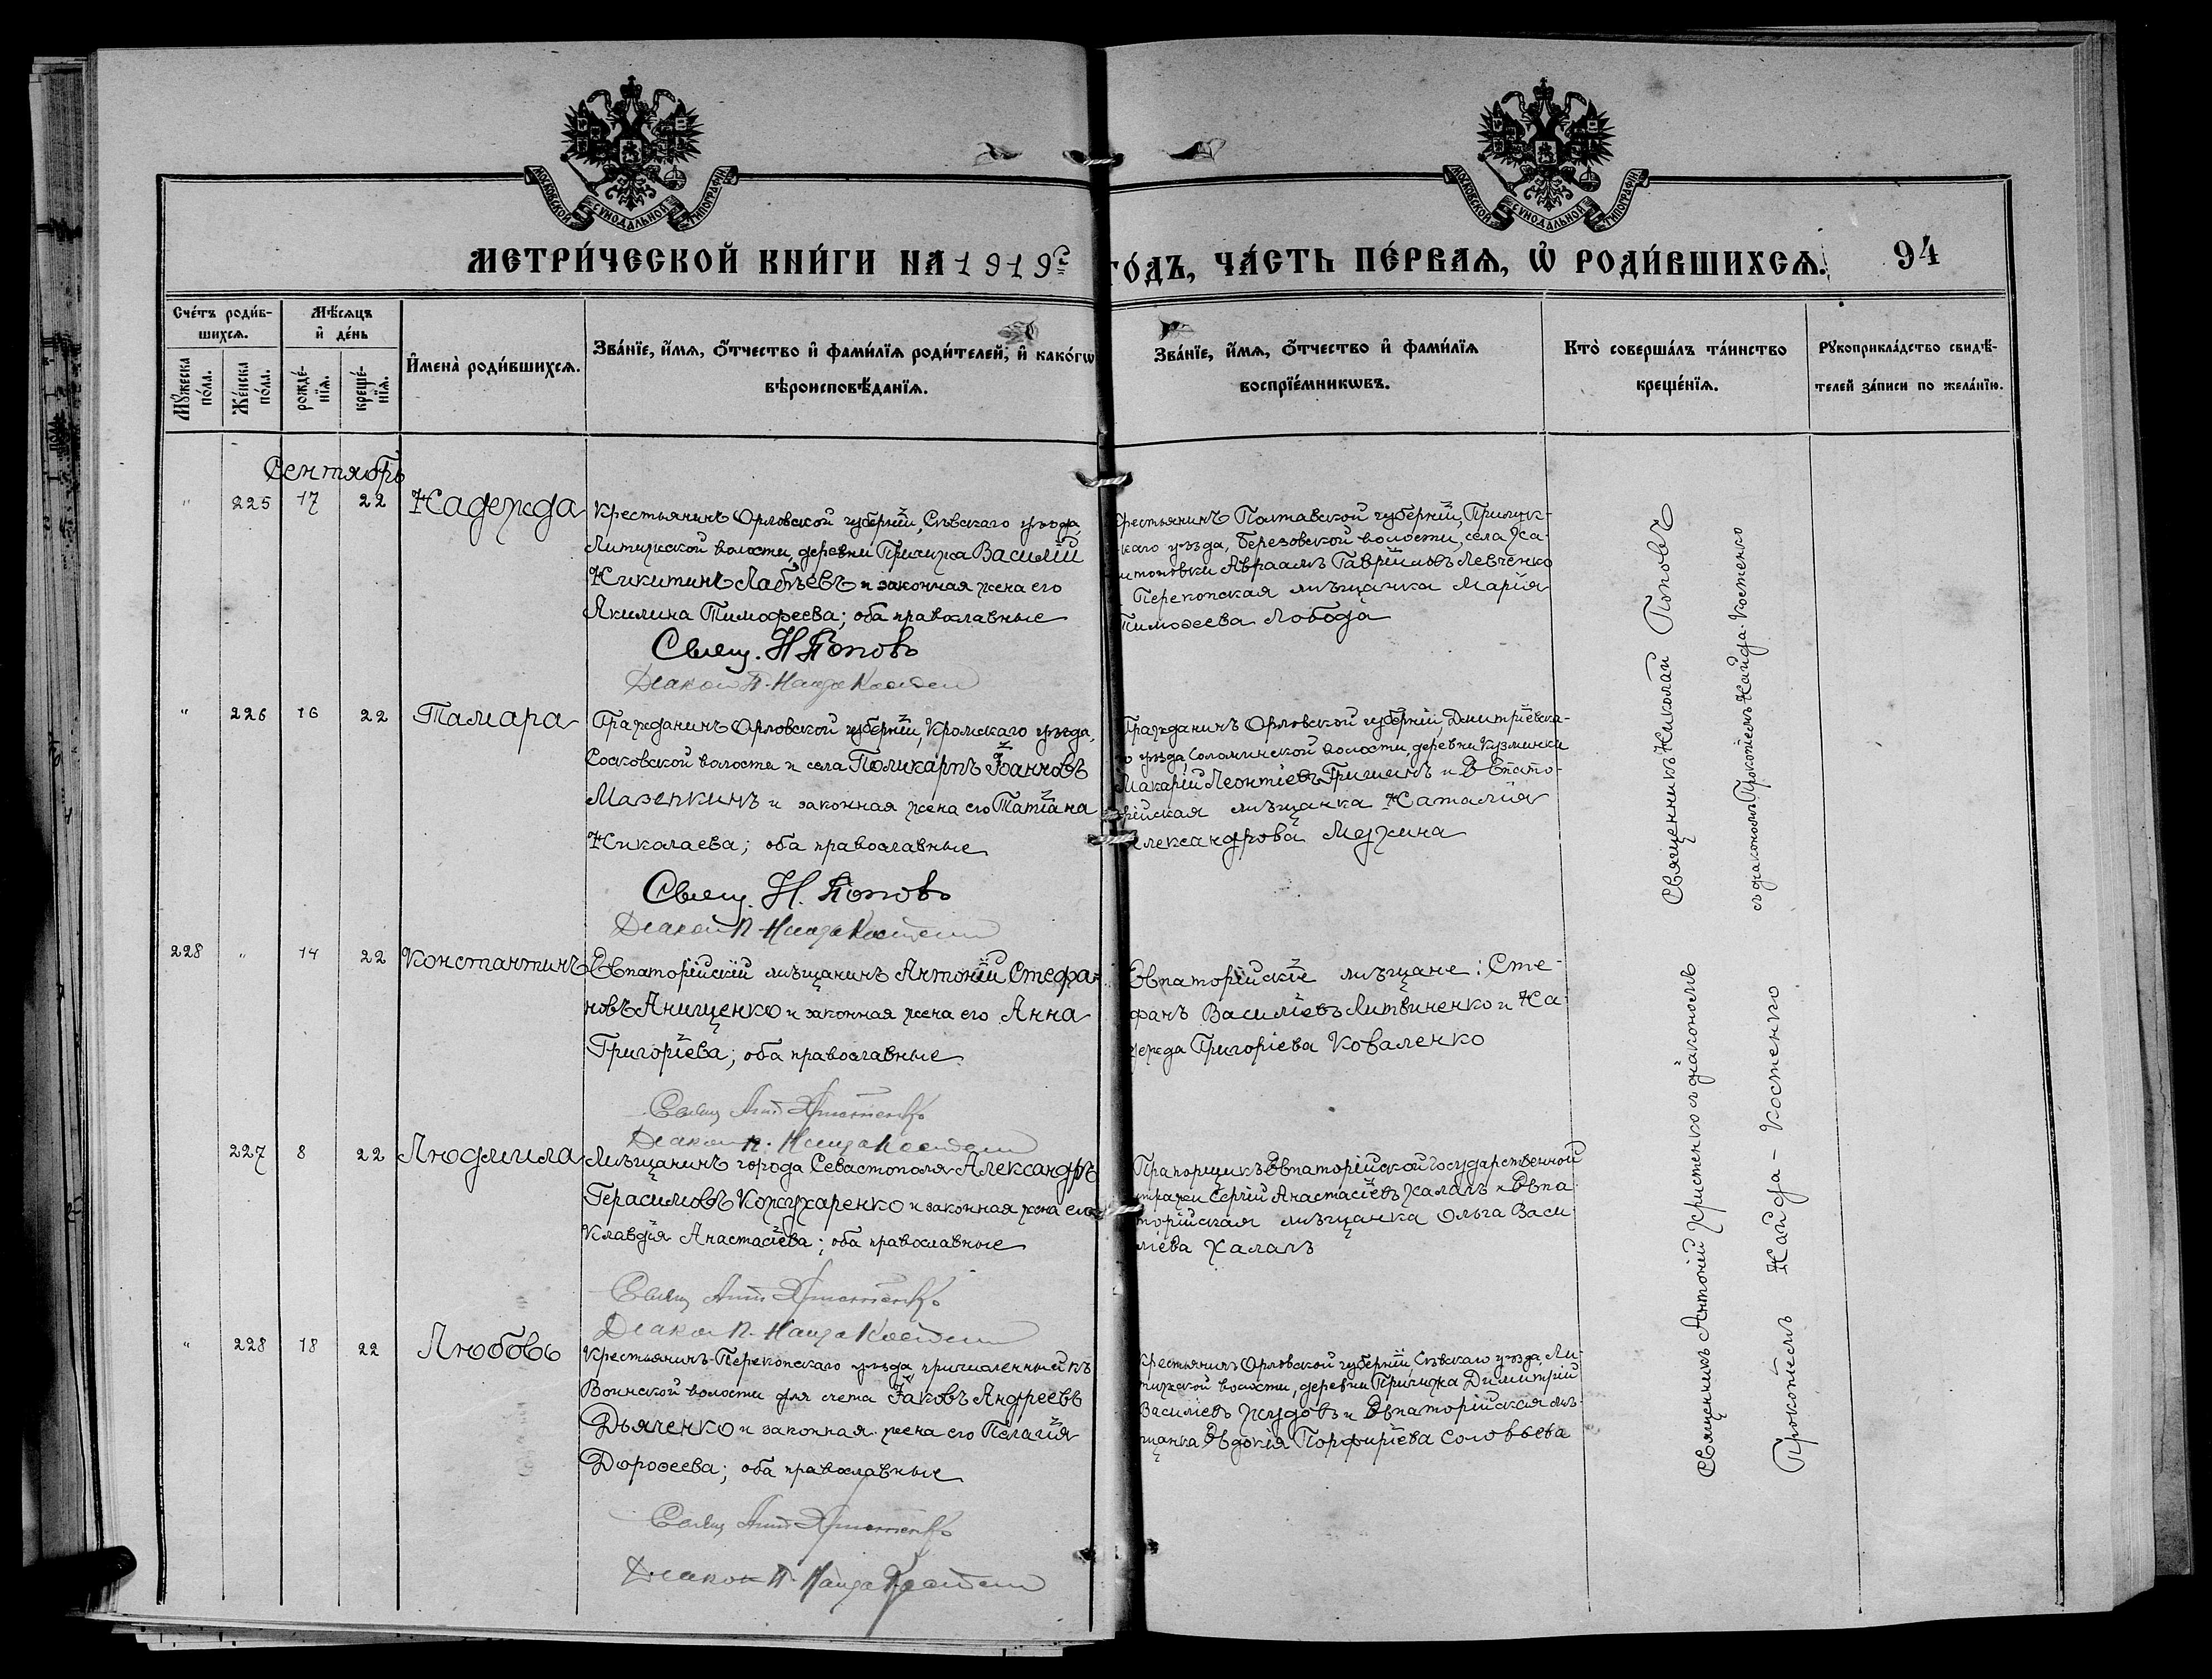 МОСКОВСКОЙ СѴНОДАЛЬНОЙ ТИПОГРАФІИ
МОСКОВСКОЙ СѴНОДАЛЬНОЙ ТИПОГРАФІИ
МЕТРИ́ЧЕСКОЙ КНИ́ГИ НА 1919 г. ГО́ДЪ, ЧА́СТЬ ПЕ́РВАѦ, Ѡ РОДИ́ВШИХСѦ.
94
Сче́тъ роди́в-
шихсѧ.
Мꙋ́жеска
по́ла.
Же́нска
по́ла.
Мѣ́сѧцъ
и҆ де́нь
рожде́-
нїѧ.
креще́-
нїѧ.
И҆мена̀ роди́вшихсѧ.
Зва́нїе, и҆́мѧ, ѻ҆́тчество и҆ фами́лїѧ роди́телей, и҆ како́гѡ
вѣроисповѣ́данїѧ.
Зва́нїе, и҆́мѧ, ѻ҆́тчество и҆ фами́лїѧ
воспрїе́мникѡвъ.
Кто̀ соверша́лъ та́инство
креще́нїѧ.
Рꙋкоприкла́дство свидѣ́-
телей за́писи по жела́нїю.
Сентябрь
" 225 17 22 Надежда
Крестьянинъ Орловской губерніи, Сѣвскаго уѣзда,
Литижской волости, деревни Прилипа Василій
Никитинъ Лабѣевъ и законная жена его
Акилина Тимофеева; оба православные
Свящ. Н Поповъ
Діакон П. Найда Костен
Крестьянинъ Полтавской губерніи, Прилук-
скаго уѣзда, Березовской волости, села Ха-
итоновки Авраамъ Гавріиловъ Левченко
Перекопская мѣщанка Марія
Тимоѳеева Лобода
" 226 16 22 Тамара
Гражданинъ Орловской губерніи, Кромскаго уѣзда,
Сосковской волости и села Поликарпъ Іоанновъ
Мазепкинъ и законная жена его Татіана
Николаева; оба православные
Свящ. Н. Поповъ
Діакон П. Найда Костен
Гражданинъ Орловской губерніи, Дмитріевска-
го уѣзда, Соломинской волости, деревни Кузминки
Макарій Леонтіевъ Гришинъ и Евпато-
рійская мѣщанка Наталія
Александрова Медхина
228 " 14 22 Константинъ
Евпаторійскій мѣщанинъ Антоній Стефа-
новъ Анищенко и законная жена его Анна
Григоріева; оба православные
Свящ Ант Христенко
Діакон П. Найда Костен
Евпаторійскіе мѣщане: Сте-
фанъ Василіевъ Литвиненко и На-
дежда Григоріева Коваленко
227 8 22 Людмила
Мѣщанинъ города Севастополя Александръ
Герасимовъ Кожухаренко и законная жена его
Клавдія Анастасіева; оба православные
Свящ Ант Христенко
Діакон П. Найда Костен
Прапорщикъ Евпаторійской Государственной
стражи Сергій Анастасіевъ Халапъ и Евпа-
торійская мѣщанка Ольга Васи-
ліева Халапъ
" 228 18 22 Любовь
Крестьянинъ Перекопскаго уѣзда, причисленный къ
Воинской волости для счета Іаковъ Андреевъ
Дьяченко и законная жена его Пелагія
Дороѳеева; оба православные
Свящ Ант Христенко
Діакон П. Найда Костен
Крестьянинъ Орловской губерніи, Сѣвскаго уѣзда, Ли-
тижской волости, деревни Прилипа Димитрій
Василіевъ Жудовъ и Евпаторійская мѣ-
щанка Евдокія Порфиріева Соловьева
Священникъ Николай Поповъ
съ діакономъ Прокопіемъ Найда-Костенко
Священникъ Антоній Христенко съ діакономъ
Прокопіемъ Найда-Костенко